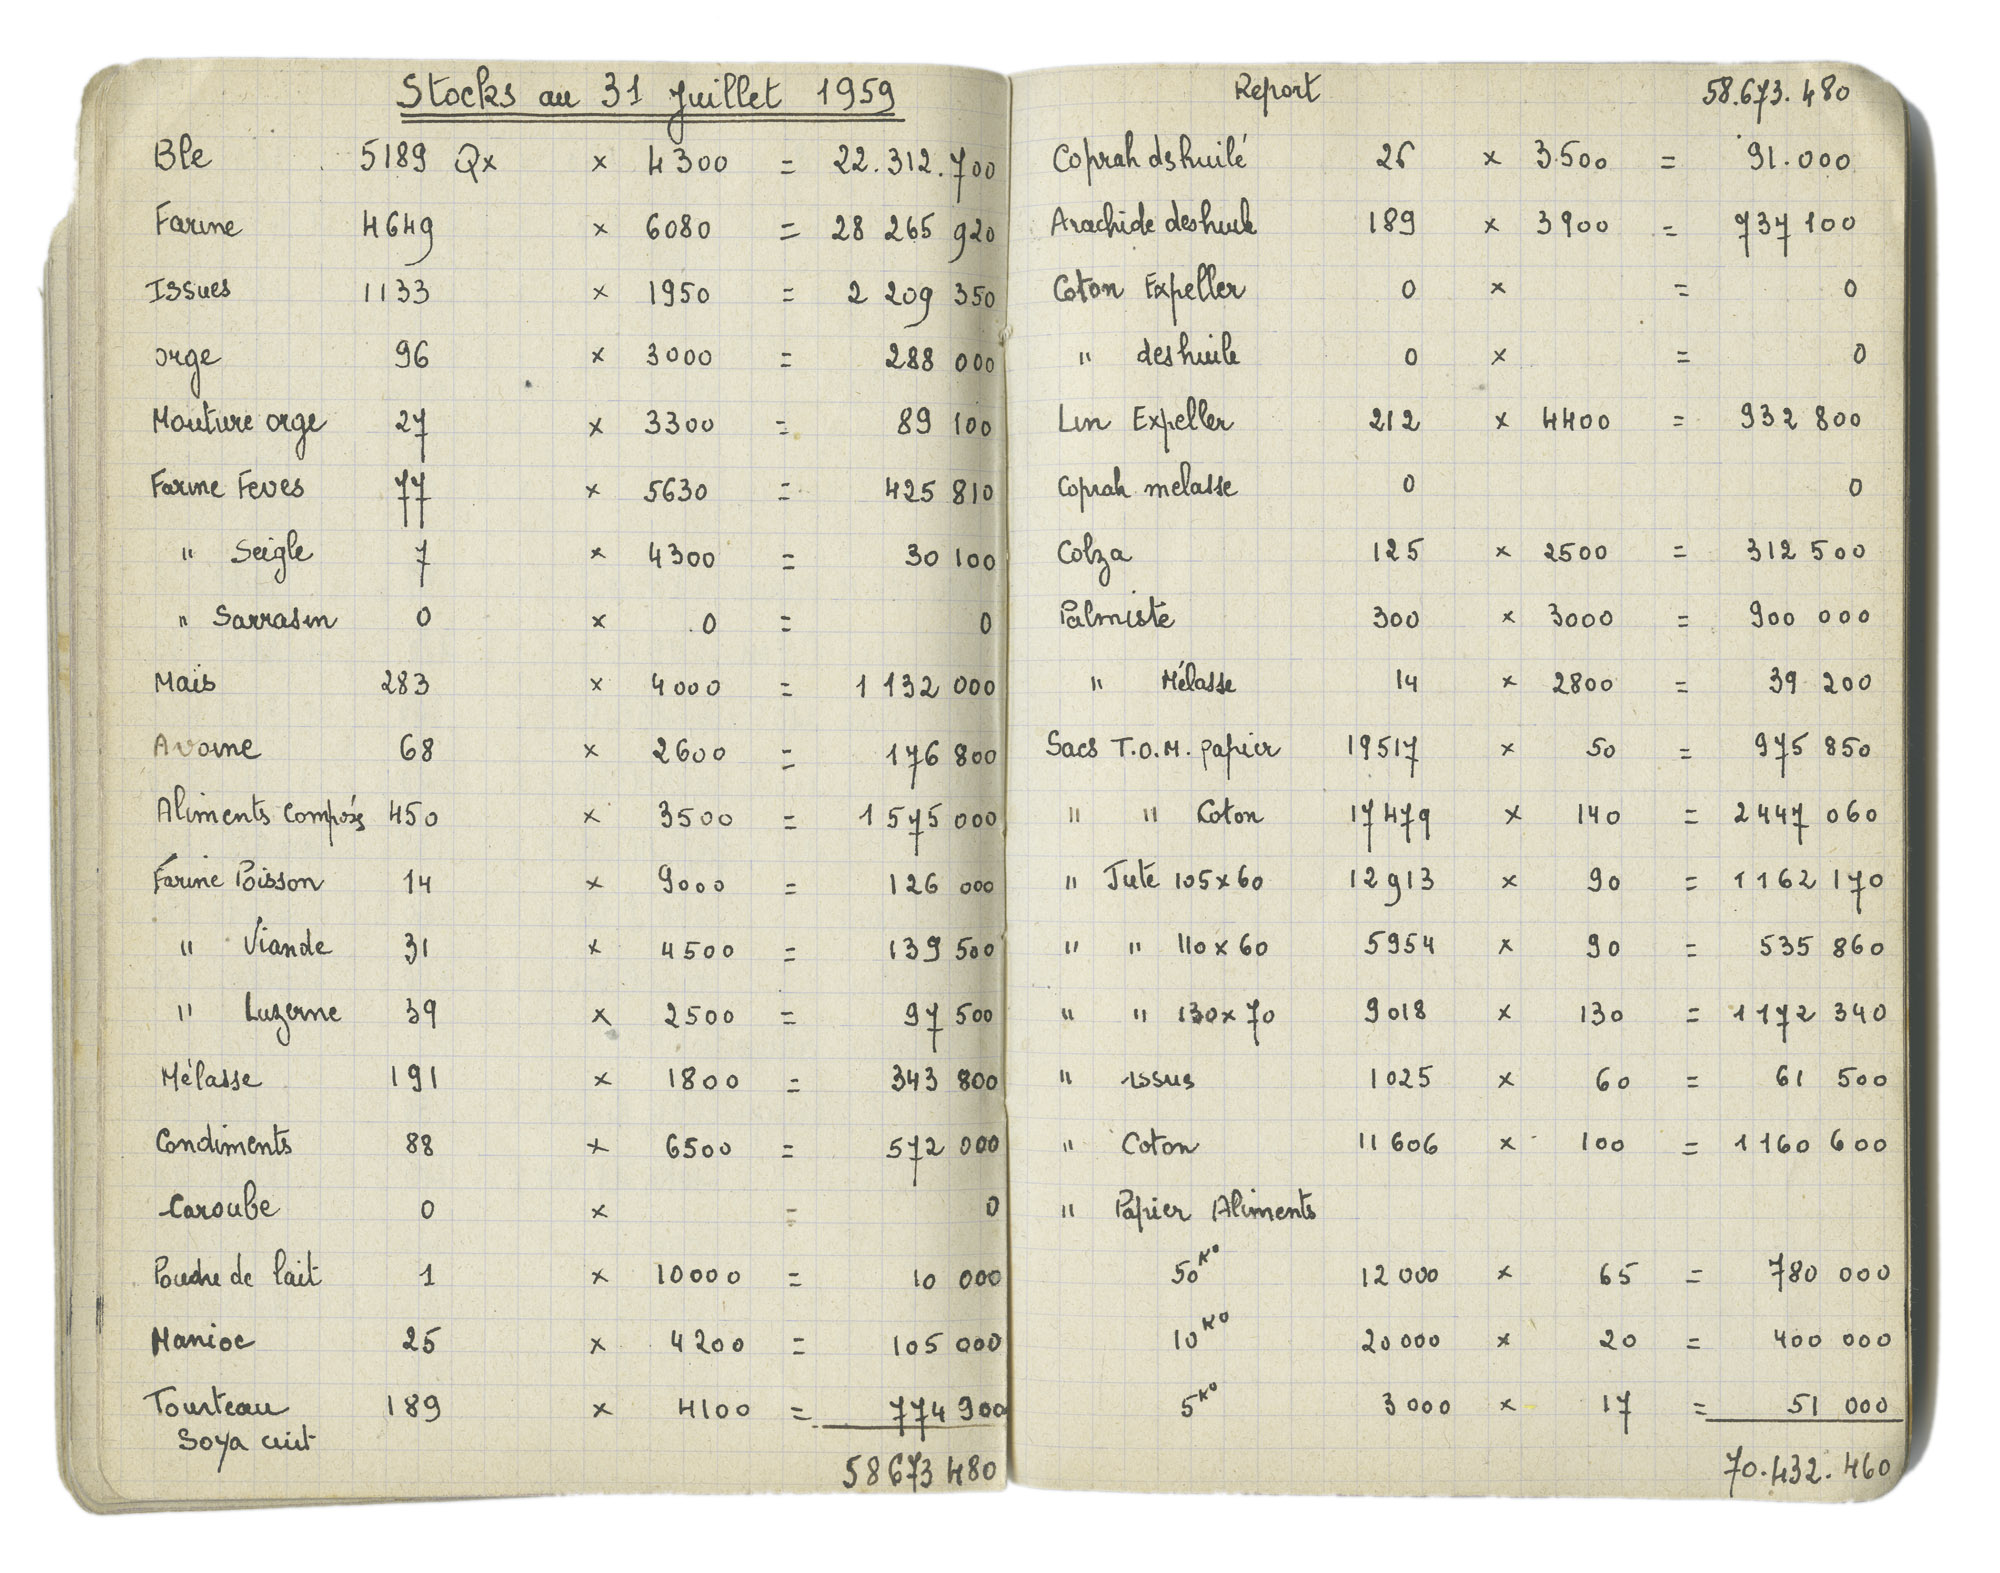 Stocks au 31 Juillet 1959
Ble 5189 Qx × 4300 = 22.312.700
Farine 4649 × 6080 = 28 265 920
Issues 1133 × 1950 = 2 209 350
orge 96 × 3000 = 288 000
Mouture orge 27 × 3300 = 89 100
Farine Feves 77 × 5630 = 425 810
" Seigle 7 × 4300 = 30 100
" Sarrasin 0 × 0 = 0
Mais 283 × 4000 = 1 132 000
Avoine 68 × 2600 = 176 800
Aliments Composés 450 × 3500 = 1 575 000
Farine Poisson 14 × 9000 = 126 000
" Viande 31 × 4500 = 139 500
" Luzerne 39 × 2500 = 97 500
Mélasse 191 × 1800 = 343 800
Condiments 88 × 6500 = 572 000
Caroube 0 × = 0
Poudre de lait 1 × 10000 = 10 000
Manioc 25 × 4200 = 105 000
Tourteau 189 × 4100 = 774 900
Soya cuit
58 673 480
Report 58.673.480
Coprah dshuilé 26 × 3.500 = 91.000
Arachide deshuile 189 × 3900 = 737 100
Coton Expeller 0 × = 0
" deshuile 0 × = 0
Lin Expeller 212 × 4400 = 932 800
Coprah melasse 0 0
Colza 125 × 2500 = 312 500
Palmiste 300 × 3000 = 900 000
" Mélasse 14 × 2800 = 39 200
Sacs T.O.M. papier 19517 × 50 = 975 850
" " Coton 17479 × 140 = 2447 060
" Jute 105×60 12913 × 90 = 1162 170
" " 110×60 5954 × 90 = 535 860
" " 130×70 9018 × 130 = 1172 340
" issus 1025 × 60 = 61 500
" Coton 11606 × 100 = 1160 600
" Papier Aliments
50 Ko 12 000 × 65 = 780 000
10 Ko 20 000 × 20 = 400 000
5 Ko 3 000 × 17 = 51 000
70.432.460